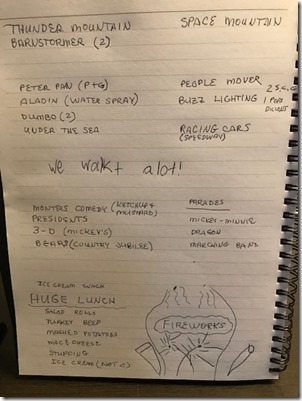 THUNDER MOUNTAIN
BARNSTORMER (2)
SPACE MOUNTAIN
PETER PAN (P+G)
ALADIN (WATER SPRAY)
DUMBO (2)
UNDER THE SEA
PEOPLE MOVER
BUZZ LIGHTING
RACING CARS
(SPEEDWAY)
we walkt alot!
MONTERS COMEDY (KETCHUP &
MUSTARD)
PRESIDENTS
3-D (MICKEY'S)
BEARS (COUNTRY JUBILEE)
PARADES
MICKEY-MINNIE
DRAGON
MARCHING BAND
ICE CREAM
HUGE LUNCH
SALAD ROLLS
TURKEY BEEF
MASHED POTATOES
MAC & CHEESE
STUFFING
ICE CREAM (NOT G)
FIREWORKS